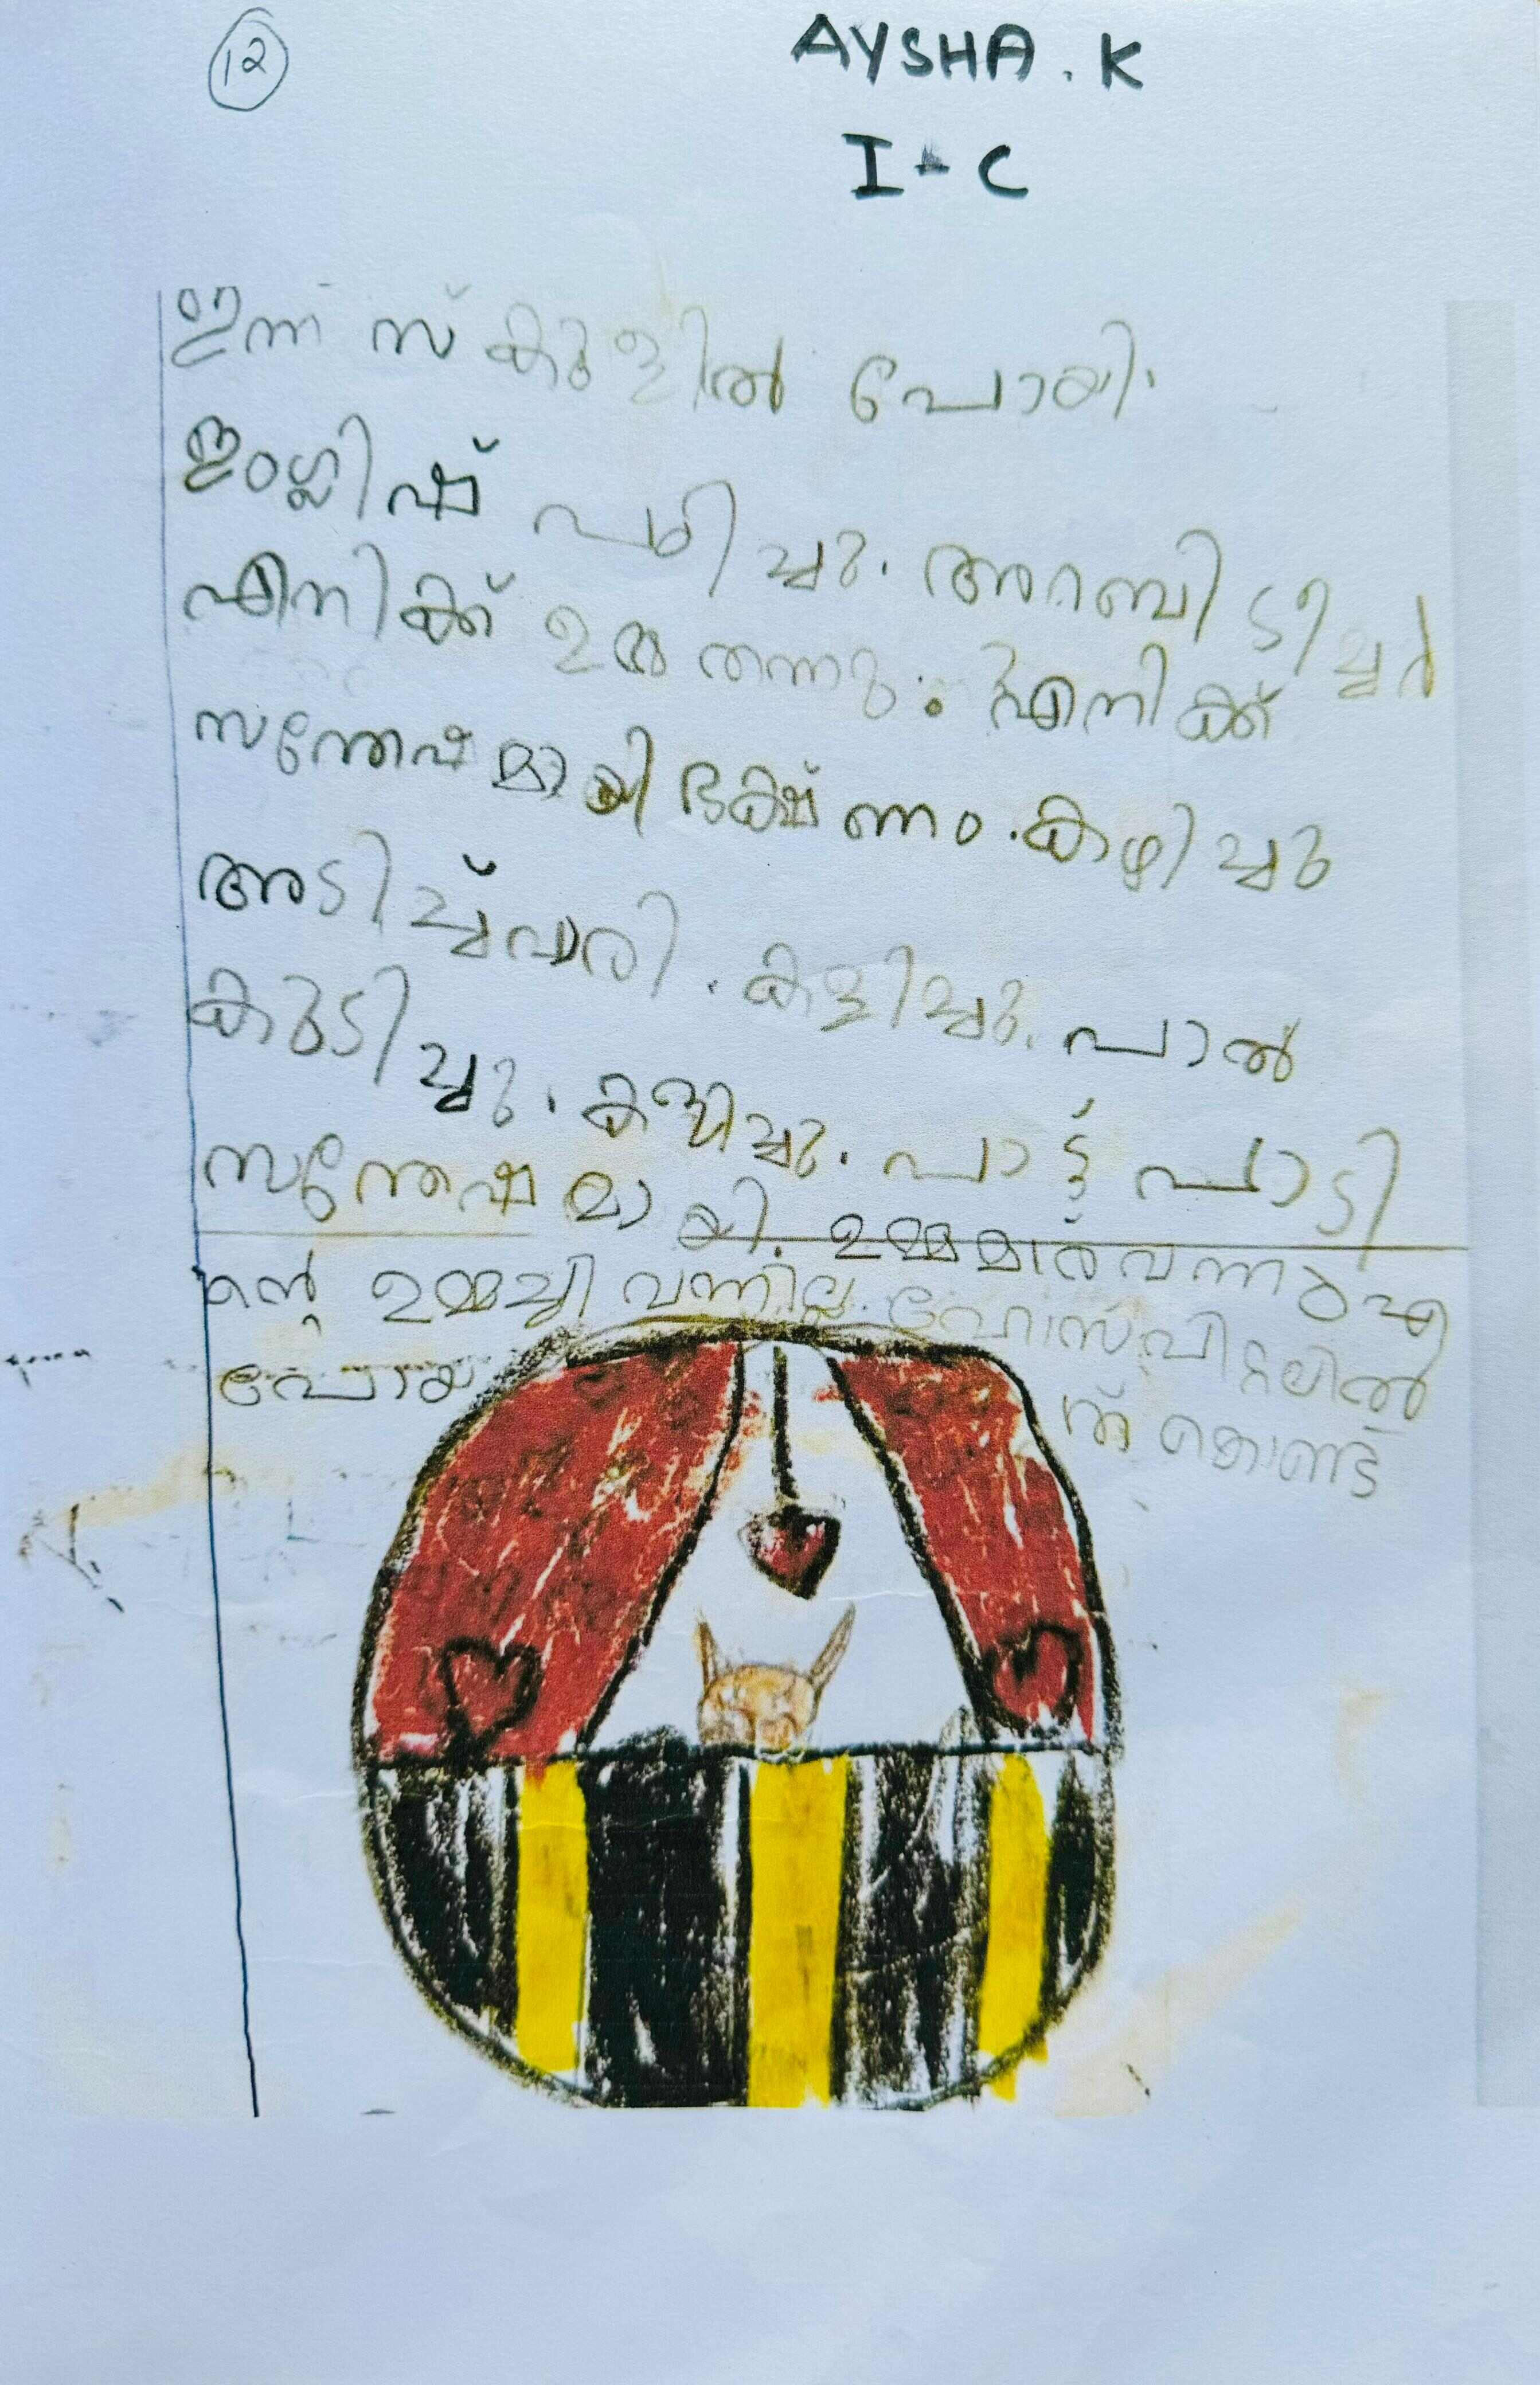 12
AYSHA.K
I-C
ഇന്ന് സ്കുളിൽ പോയി.
ഇംഗ്ലിഷ് പഠിച്ചു. അറബി ടീച്ചർ
എനിക്ക് ഉമ്മ തന്നു. എനിക്ക്
സന്തോഷമായി ഭക്ഷ്ണം.കഴിച്ചു
അടിച്ച്വാരി. കളിച്ചു. പാൽ
കുടിച്ചു. കളിച്ചു. പാട്ട് പാടി
സന്തോഷമായി. ഉമ്മമാർവന്നു എ
ന്റെ ഉമ്മച്ചി വന്നില്ല. ഹോസ്പിറ്റലിൽ
പോയ ത് കൊണ്ട്